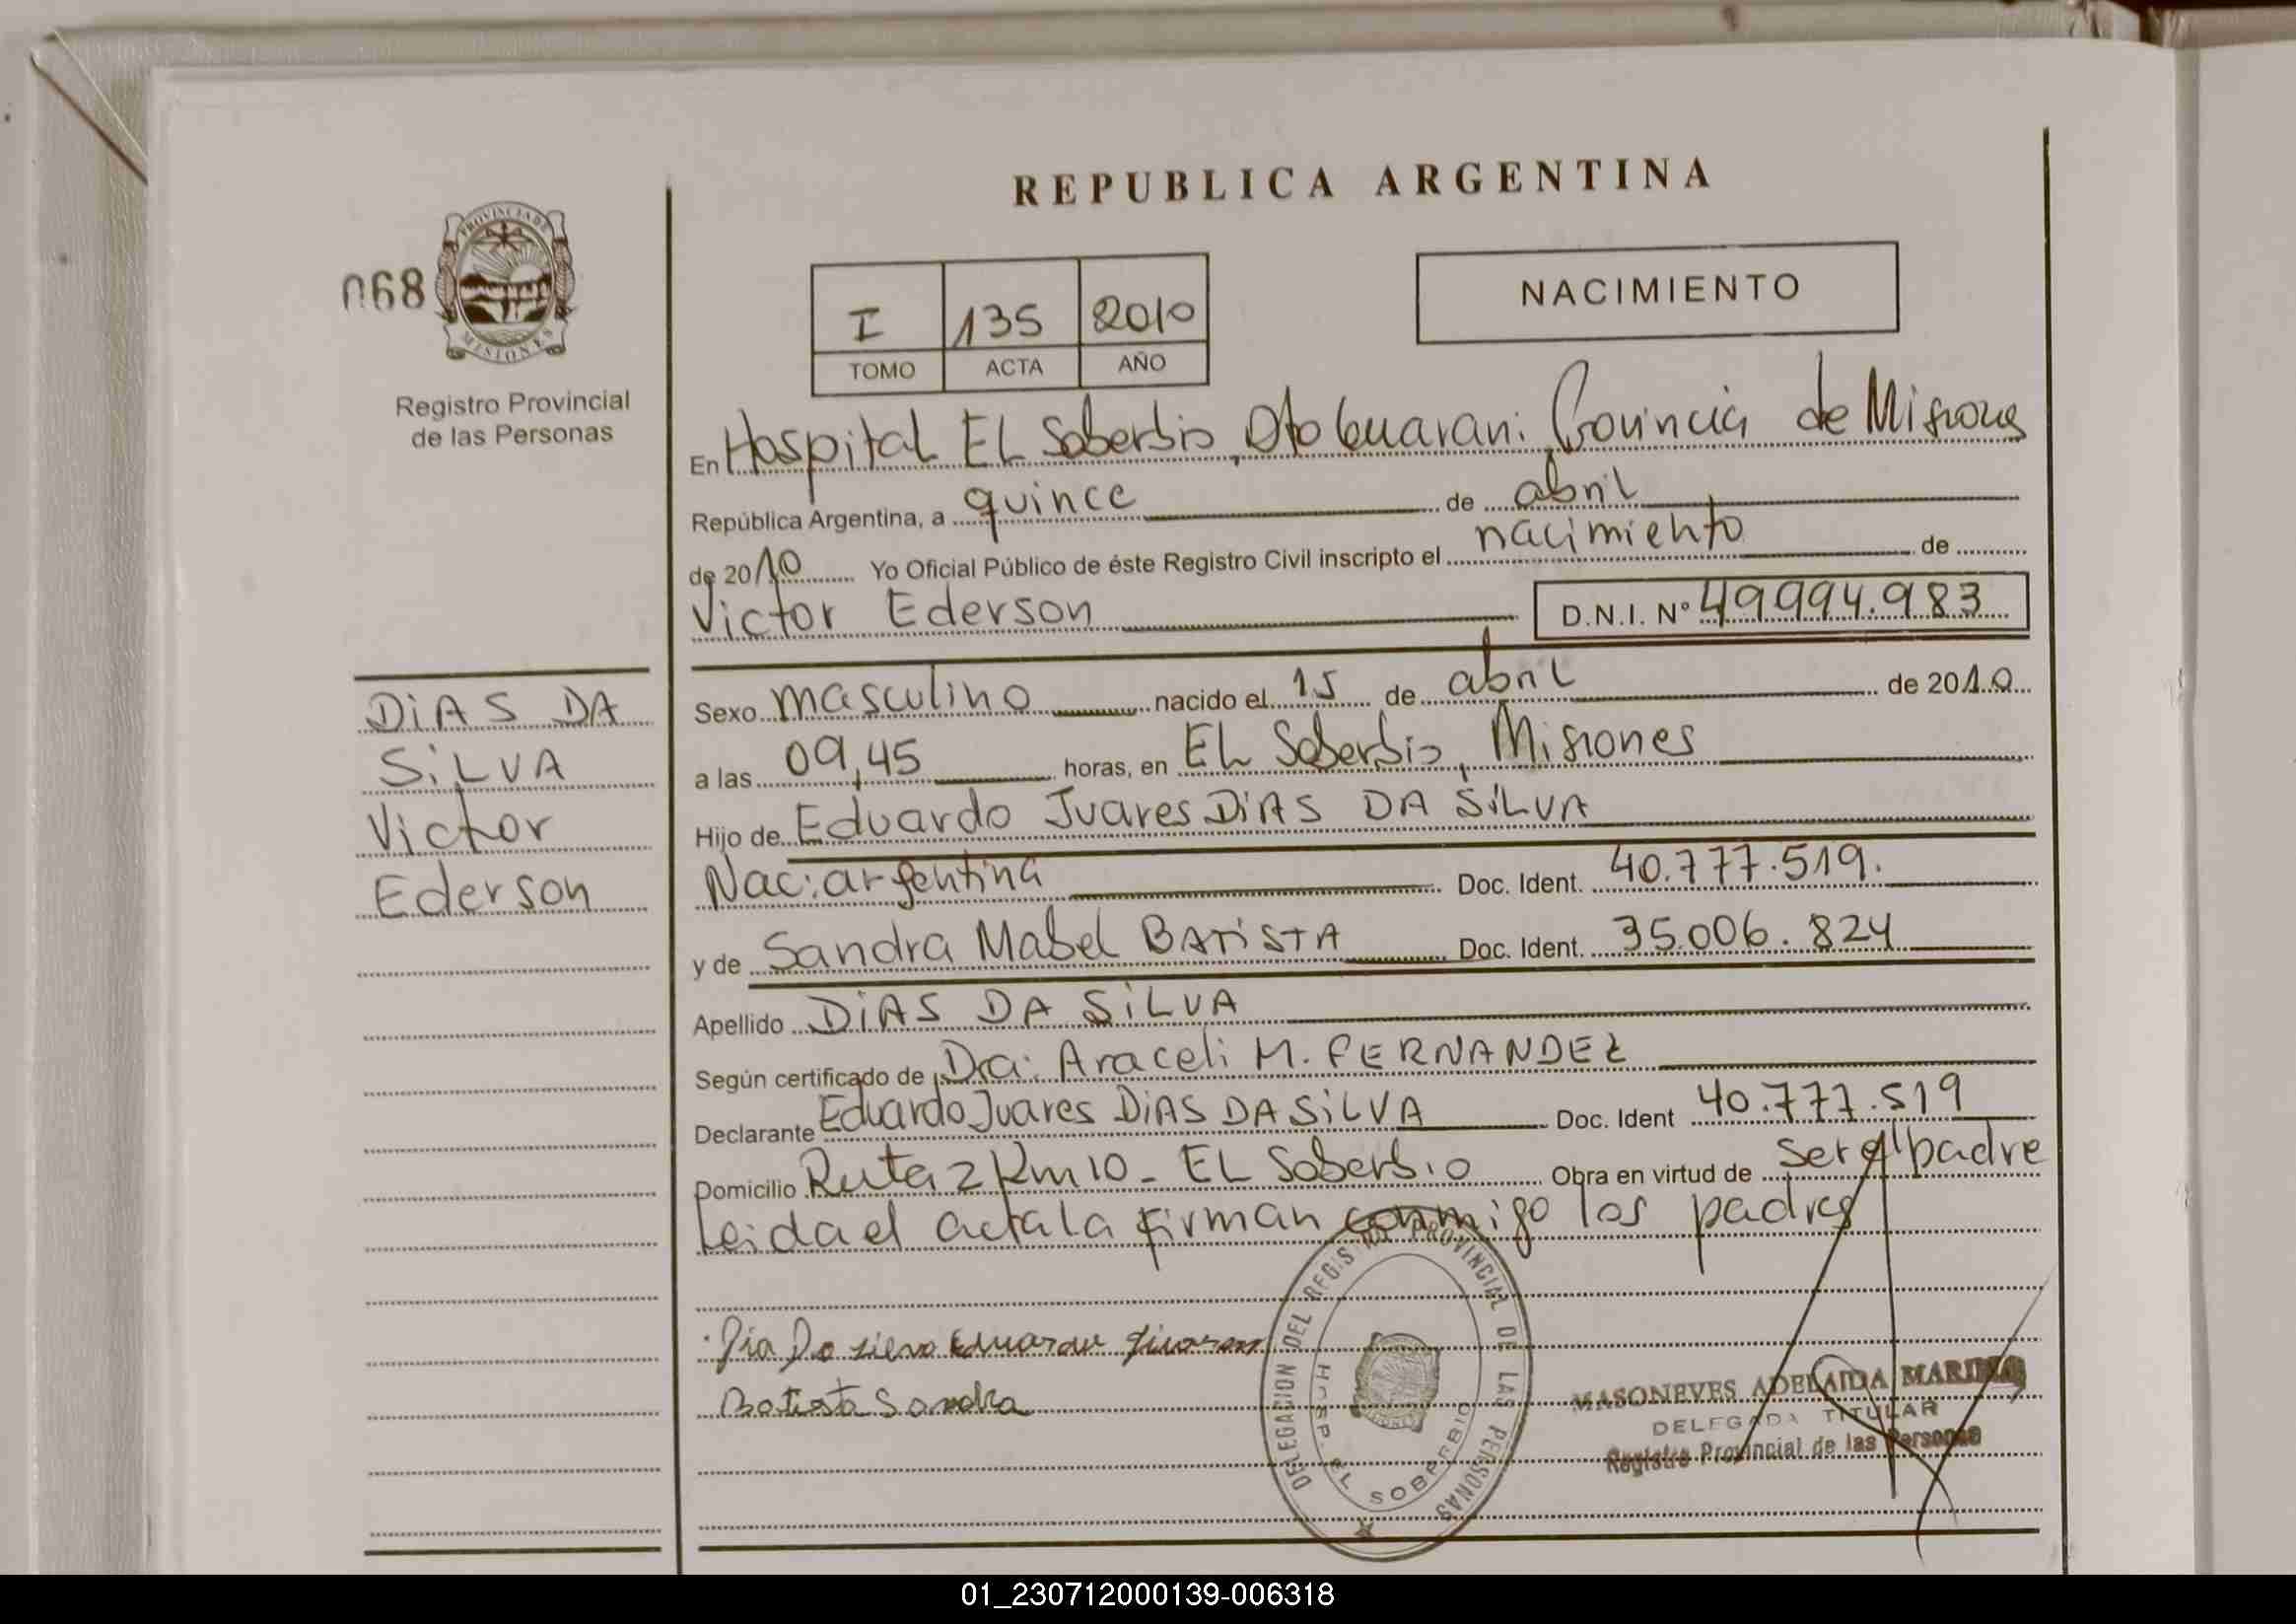 REPUBLICA ARGENTINA
068
PROVINCIA DE
MISIONES
Registro Provincial
de las Personas
I 135 2010
TOMO ACTA AÑO
NACIMIENTO
En Hospital EL Soberbio, Dto Guarani. Provincia de Misiones
República Argentina, a quince de abril
de 2010 Yo Oficial Público de éste Registro Civil inscripto el nacimiento de
Victor Ederson D.N.I. Nº 49994.983
DiAS DA
SiLVA
Victor
Ederson
Sexo masculino nacido el 15 de abril de 2010
a las 09,45 horas, en EL Soberbio, Misiones
Hijo de Eduardo Juares DiAS DA SiLVA
Nac: argentina Doc. Ident. 40.777.519.
y de Sandra Mabel BATiSTA Doc. Ident. 35.006.824
Apellido DiAS DA SiLVA
Según certificado de Dra. Araceli M. FERNANDEZ
Declarante Eduardo Juares DiAS DA SiLVA Doc. Ident 40.777.519
Domicilio Ruta 2 Km 10 - EL Soberbio Obra en virtud de ser el padre
Leida el acta la firman conmigo los padres
Eduardo
Batista Sandra
DELEGACION DEL REGISTRO PROVINCIAL DE LAS PERSONAS
HOSP. EL SOBERBIO
MASONEVES ADELAIDA
DELEGADA TITULAR
Registro Provincial de las Personas
01_230712000139-006318